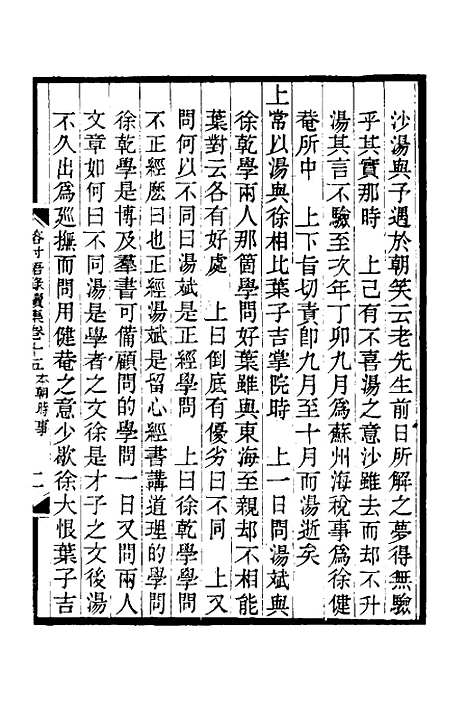 沙湯與予遇於朝笑云老先生前日所解之夢得無驗
乎其實那時　上已有不喜湯之意沙雖去而却不升
湯其言不驗至次年丁卯九月爲蘇州海稅事爲徐健
菴所中　上下旨切責卽九月至十月而湯逝矣
上常以湯與徐相比葉子吉掌院時　上一日問湯斌與
徐乾學兩人那箇學問好葉雖與東海至親却不相能
葉對云各有好處　上曰倒底有優劣曰不同　上又
問何以不同曰湯斌是正經學問　上曰徐乾學學問
不正經麽曰湯斌是留心經書講道理的學問
徐乾學是博及羣書可備顧問的學問一日又問兩人
文章如何曰不同湯是學者之文徐是才子之文後湯
不久出爲廵撫而問用健菴之意少歇徐大恨葉子吉
榕村語錄續集卷十五本朝時事　二